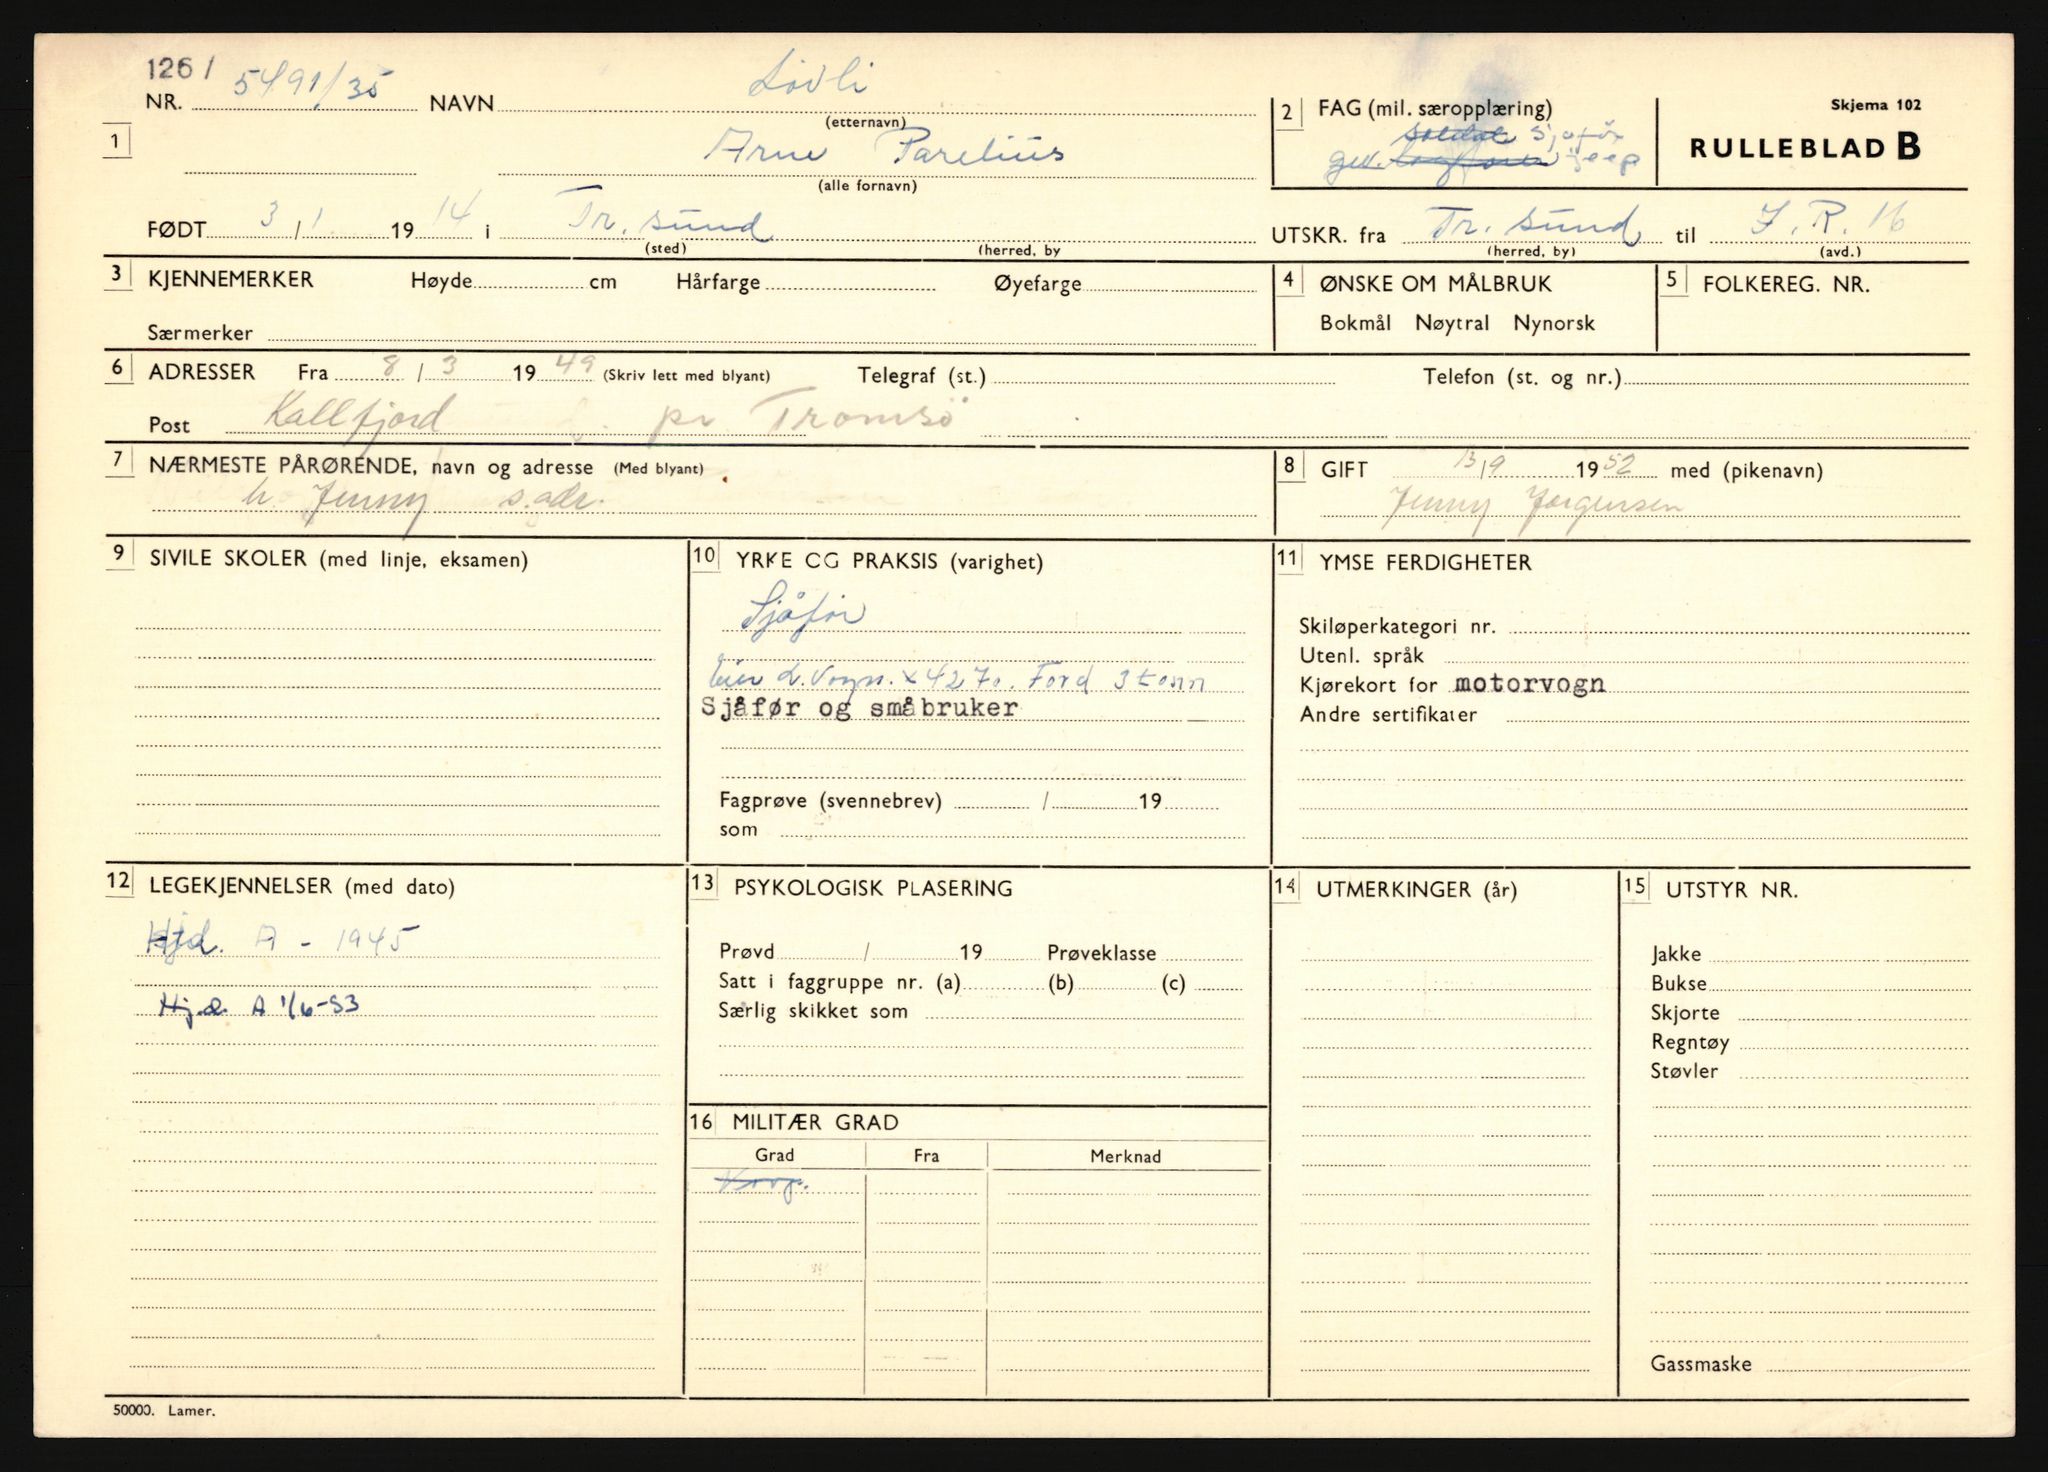 126/
NR. 5491/35 NAVN Lövli
(etternavn)
2 FAG (mil. særopplæring)
Skjema 102
1 Arne Parelius
(alle fornavn)
soldat Sjåfør
gev. Jeep
RULLEBLAD B
FØDT 3/1 1914 i Tr.sund
(sted) (herred, by
UTSKR. fra Tr.sund til I.R.16
(herred, by) (avd.)
3 KJENNEMERKER Høyde cm Hårfarge Øyefarge
Særmerker
4 ØNSKE OM MÅLBRUK
Bokmål Nøytral Nynorsk
5 FOLKEREG. NR.
6 ADRESSER Fra 8/3 1949 (Skriv lett med blyant) Telegraf (st.) Telefon (st. og nr.)
Post Kallfjord pr Tromsö
7 NÆRMESTE PÅRØRENDE, navn og adresse (Med blyant)
h. Jenny s.adr.
8 GIFT 13/9 1952 med (pikenavn)
Jenny Jørgensen
9 SIVILE SKOLER (med linje, eksamen)
10 YRKE OG PRAKSIS (varighet)
Sjåfør
Eier L.Vogn. x4270. Ford 3tonn
Sjåfør og småbruker
Fagprøve (svennebrev) / 19
som
11 YMSE FERDIGHETER
Skiløperkategori nr.
Utenl. språk
Kjørekort for motorvogn
Andre sertifikater
12 LEGEKJENNELSER (med dato)
Hjd. A - 1945
Hj.d. A 1/6-53
13 PSYKOLOGISK PLASERING
Prøvd / 19 Prøveklasse
Satt i faggruppe nr. (a) (b) (c)
Særlig skikket som
14 UTMERKINGER (år)
15 UTSTYR NR.
Jakke
Bukse
Skjorte
Regntøy
Støvler
Gassmaske
16 MILITÆR GRAD
Grad Fra Merknad
Korp.
50000. Lamer.